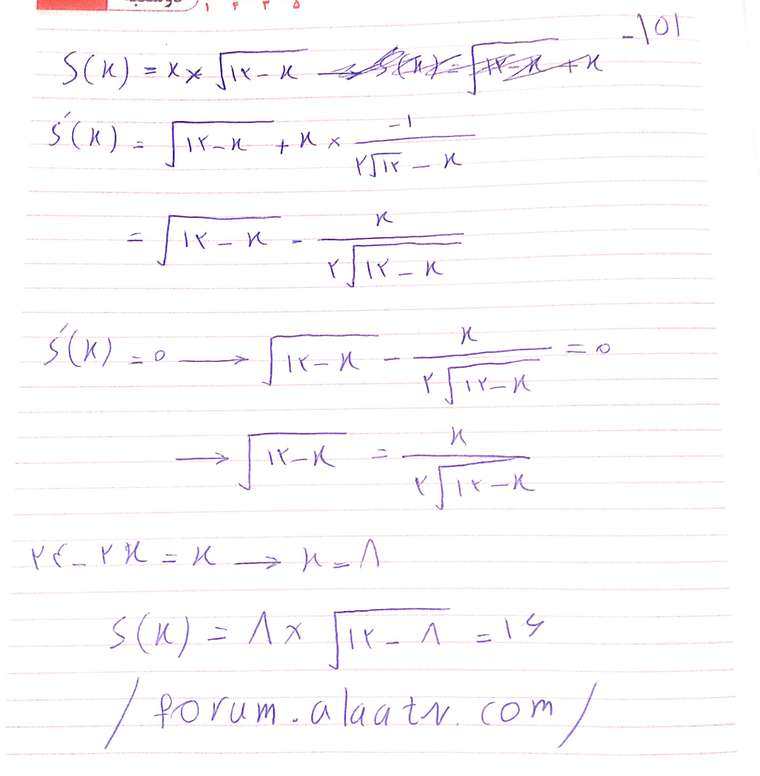 ۱ ۲ ۳ ۵
-۱۵۱
S(x) = x × √(۱۲ - x)
S′(x) = √(۱۲ - x) + x × -۱ / ۲√۱۲ - x
= √(۱۲ - x) - x / ۲√(۱۲ - x)
S′(x) = ۰ → √(۱۲ - x) - x / ۲√(۱۲ - x) = ۰
→ √(۱۲ - x) = x / ۲√(۱۲ - x)
۲۴ - ۲x = x → x = ۸
S(x) = ۸ × √(۱۲ - ۸) = ۱۶
/ forum.alaatv.com /